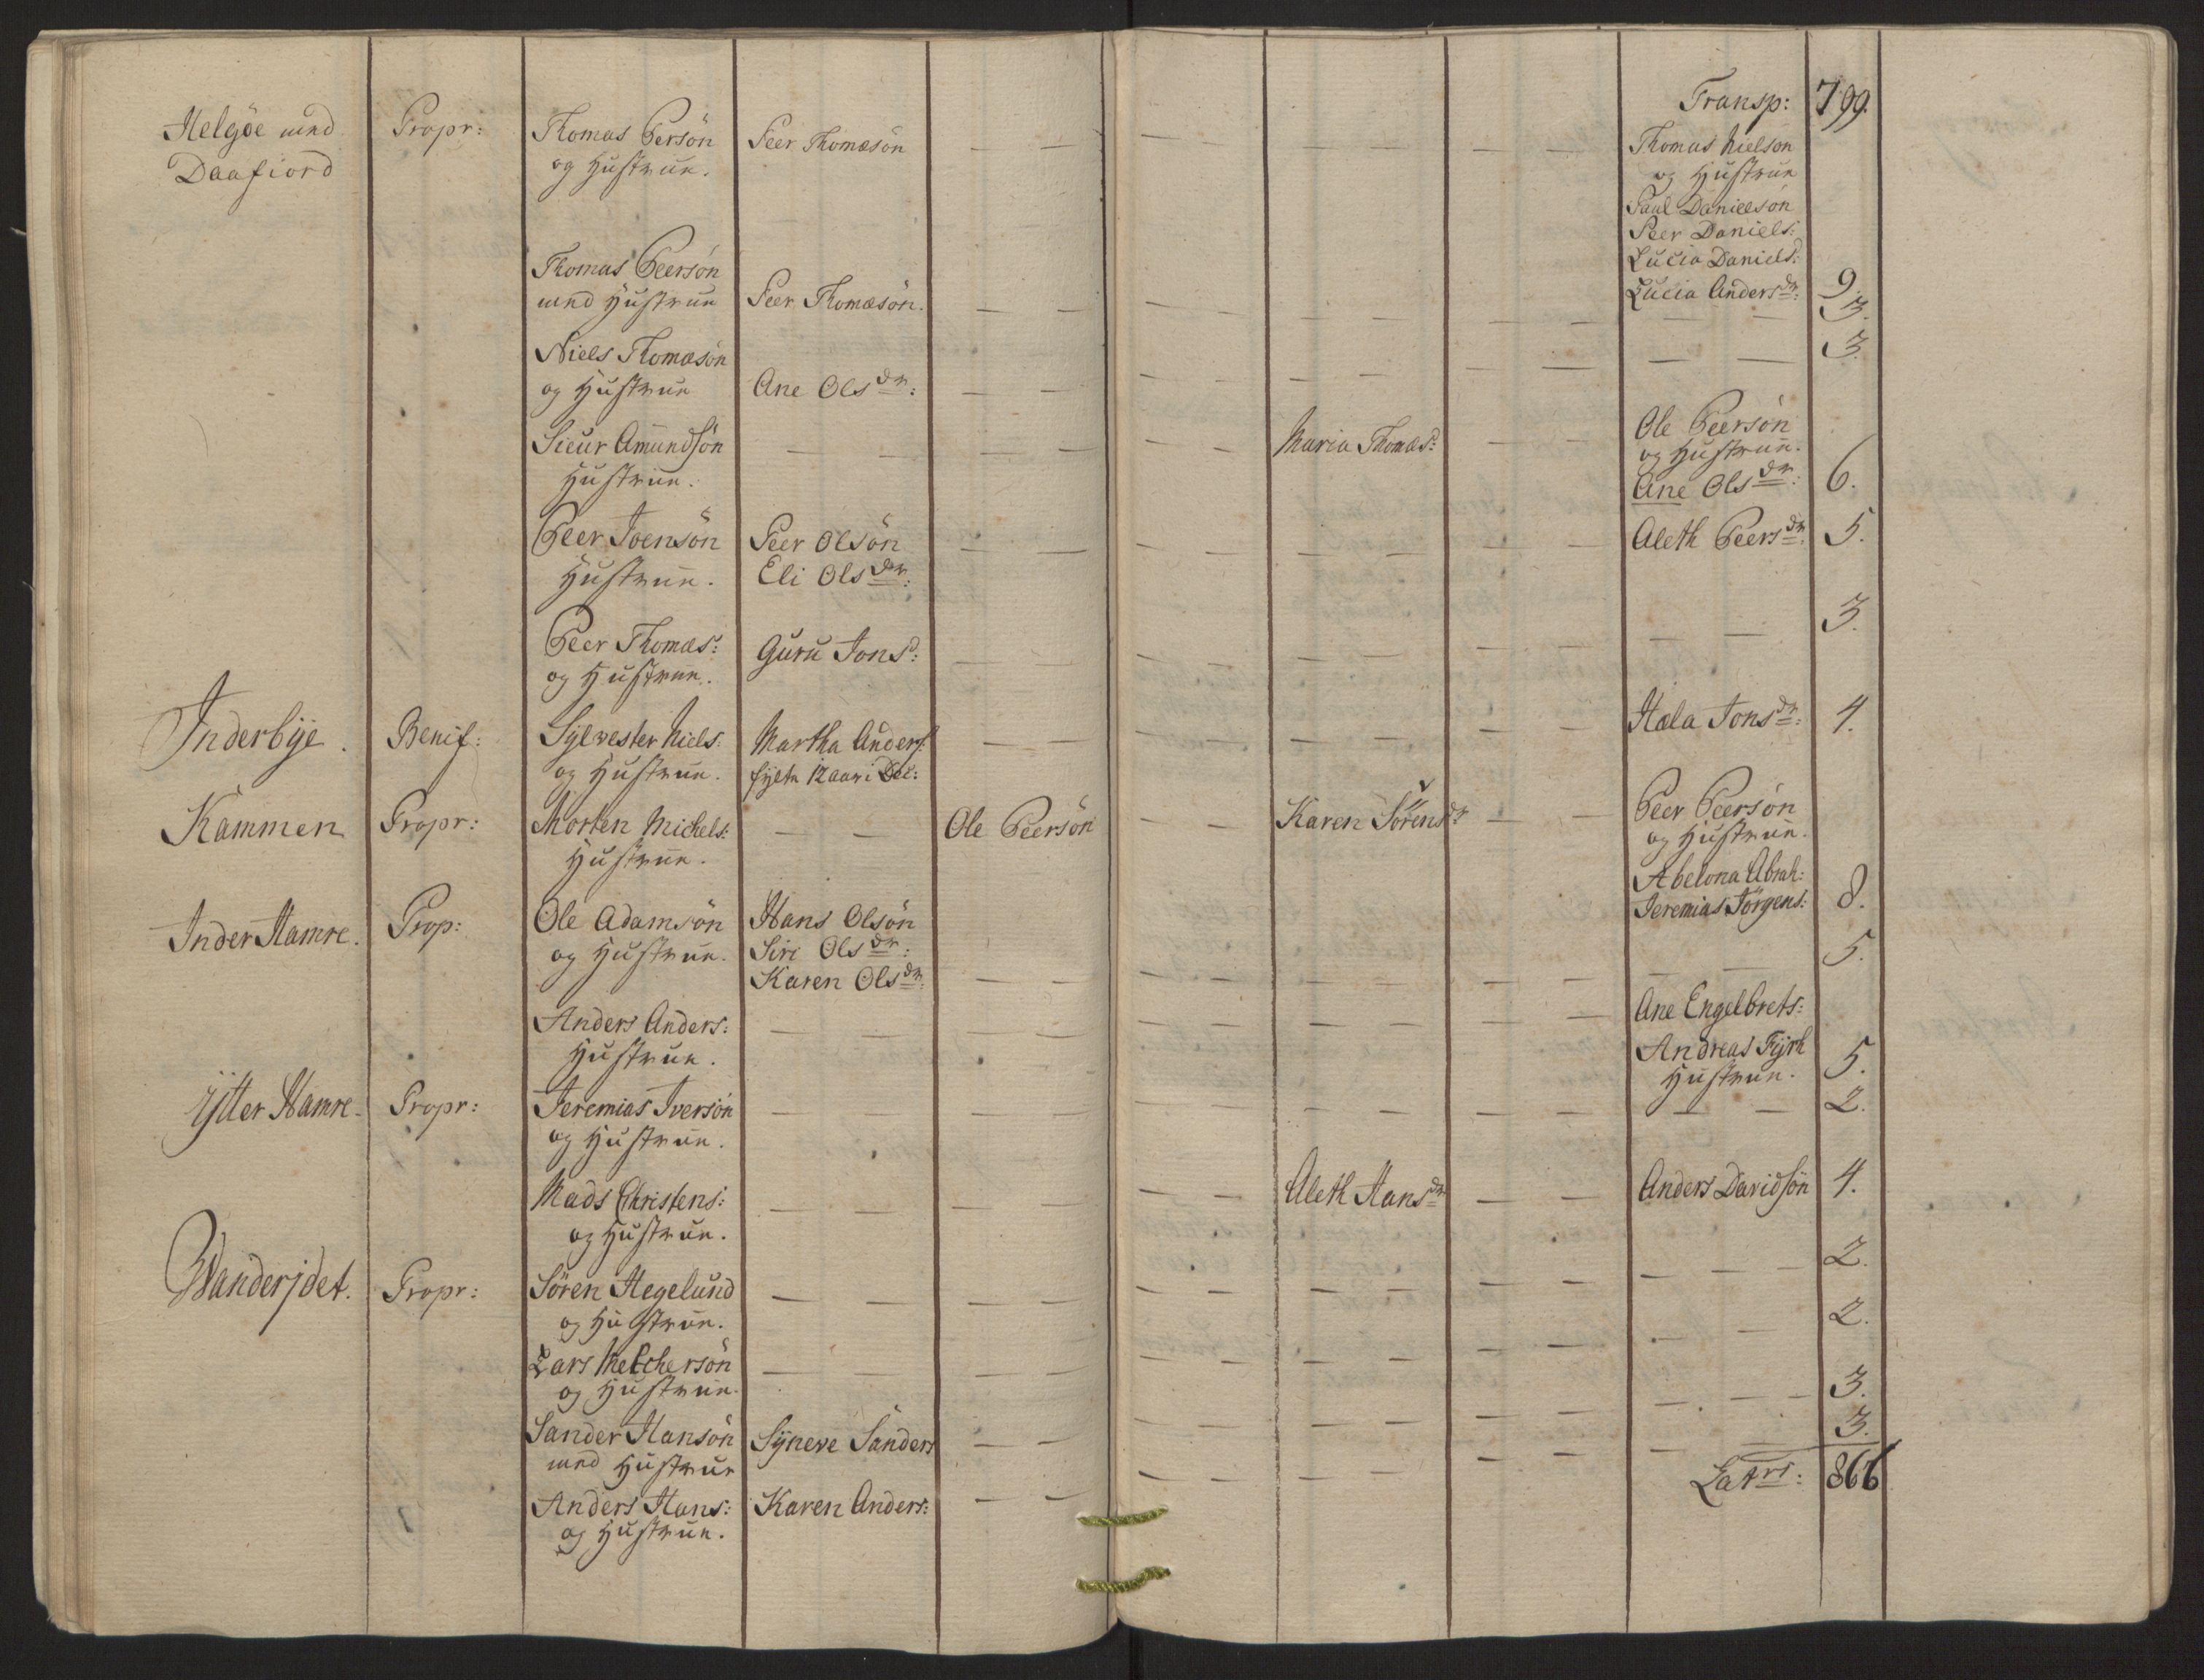 Transp: 799.
Helgöe med Propr: Thomas Persön Peer Thomæsön — — — — — — — Thomas Nielsön
Daafiord og Hustrue. og Hustrue
Paul Danielsön
Peer Daniels:
Thomas Peersön Lucia Daniels:
med Hustrue Peer Thomæsön. — — — — — — — — Lucia Anders dr: 9.
— — 3.
Niels Thomæsön — — 3.
og Hustrue Ane Ols dr: — — — — — — — —
Sieur Amundsön — — — — — — Maria Thomæs: — — Ole Peersön
Hustrue. og Hustrue.
Ane Ols dr: 6.
Peer Ivensön Peer Olsön — — — — — — — — Aleth Peers dr. 5.
Hustrue. Eli Ols dr:
Peer Thomæs: Guru Jons: — — — — — — — — 3.
og Hustrue.
Inderbye. Benif: Sylvester Niels: Martha Anders: — — — — — — — — Hæla Jons dr: 4.
og Hustrue. fylte 12 aar i Dec:
Kammen Propr: Morten Michels: — — Ole Peersön — — Karen Sörens dr — — Peer Peersön
Hustrue. og Hustrue.
Abelona Abrah:
Jeremias Jörgens: 8.
Inder Hamre. Prop: Ole Adamsön Hans Olsön
og Hustrue. Siri Ols dr: — — 5.
Karen Ols dr: — — — — — — — —
Anders Anders: — — — — — — — — — — Ane Engelbrets:
Hustrue. Andreas Fyrh
Hustrue. 5.
Ytter Hamre. Propr: Jeremias Iversön — — — — — — — — — — — — 2.
og Hustrue.
Mads Christens: — — — — — — Aleth Hans dr — — Anders Davidsön 4.
og Hustrue.
Wanderjdet. Propr: Sören Hegelund — — — — — — — — — — — — 2.
og Hustrue.
Lars Melchersön — — — — — — — — — — — — 2.
og Hustrue.
Sander Hansön Syneve Sanders — — — — — — — — — — 3.
med Hustrue
Anders Hans: Karen Anders: — — — — — — — — — — 3.
og Hustrue.
Latrs: 866